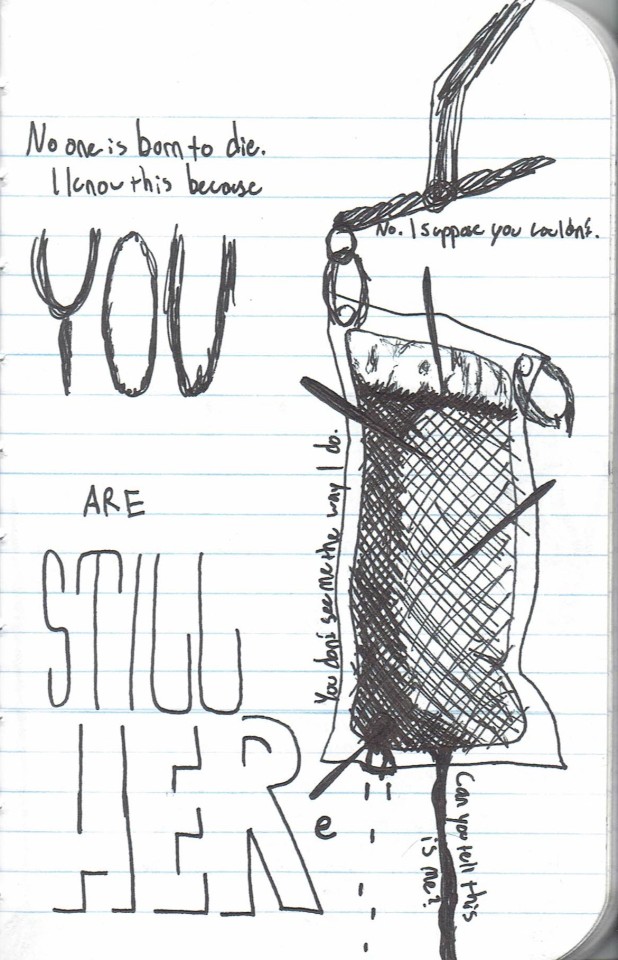 No one is born to die.
I know this because
YOU
ARE
STILL
HER
e
No. I suppose you wouldn't.
You don't see me the way I do.
Can you tell this
is me?